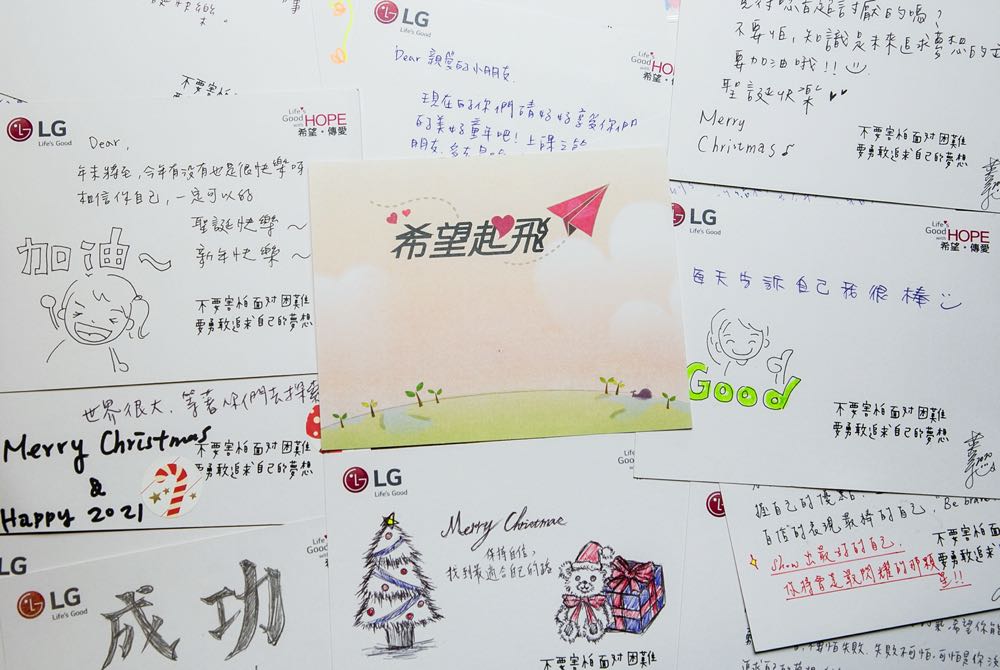 LG
Life's Good
Dear 親愛的小朋友
現在的你們請好好享受你們
的美好童年吧！上課之餘
Life's
Good
with HOPE
希望・傳愛
不要怕，知識是未來追求夢想的
要加油哦！！
聖誕快樂
Merry
Christmas
不要害怕面对困難
要勇敢追求自己的夢想
不要害怕
LG
Life's Good
Life's
Good
with HOPE
希望・傳愛
Dear,
年末將至，今年有沒有也是很快樂呀
相信你自己，一定可以的
聖誕快樂～
新年快樂～
加油～
不要害怕面对困難
要勇敢追求自己的夢想
希望起飛
LG
Life's Good
Life's
Good
with HOPE
希望・傳愛
每天告訴自己我很棒
Good
不要害怕面对困難
要勇敢追求自己的夢想
世界很大，等著你們去探索
Merry Christmas
&
Happy 2021
不要害怕面对困難
要勇敢追求自己的夢想
LG
Life's Good
Merry Christmas
保持自信，
找到最適合自己的路
不要害怕面对困難
LG
LG
Life's Good
成功
握自己的優點
自信的表現最棒的自己，Be brave
show出最好的自己，
你將會是最閃耀的那顆
星!!
不要害怕
要勇敢追